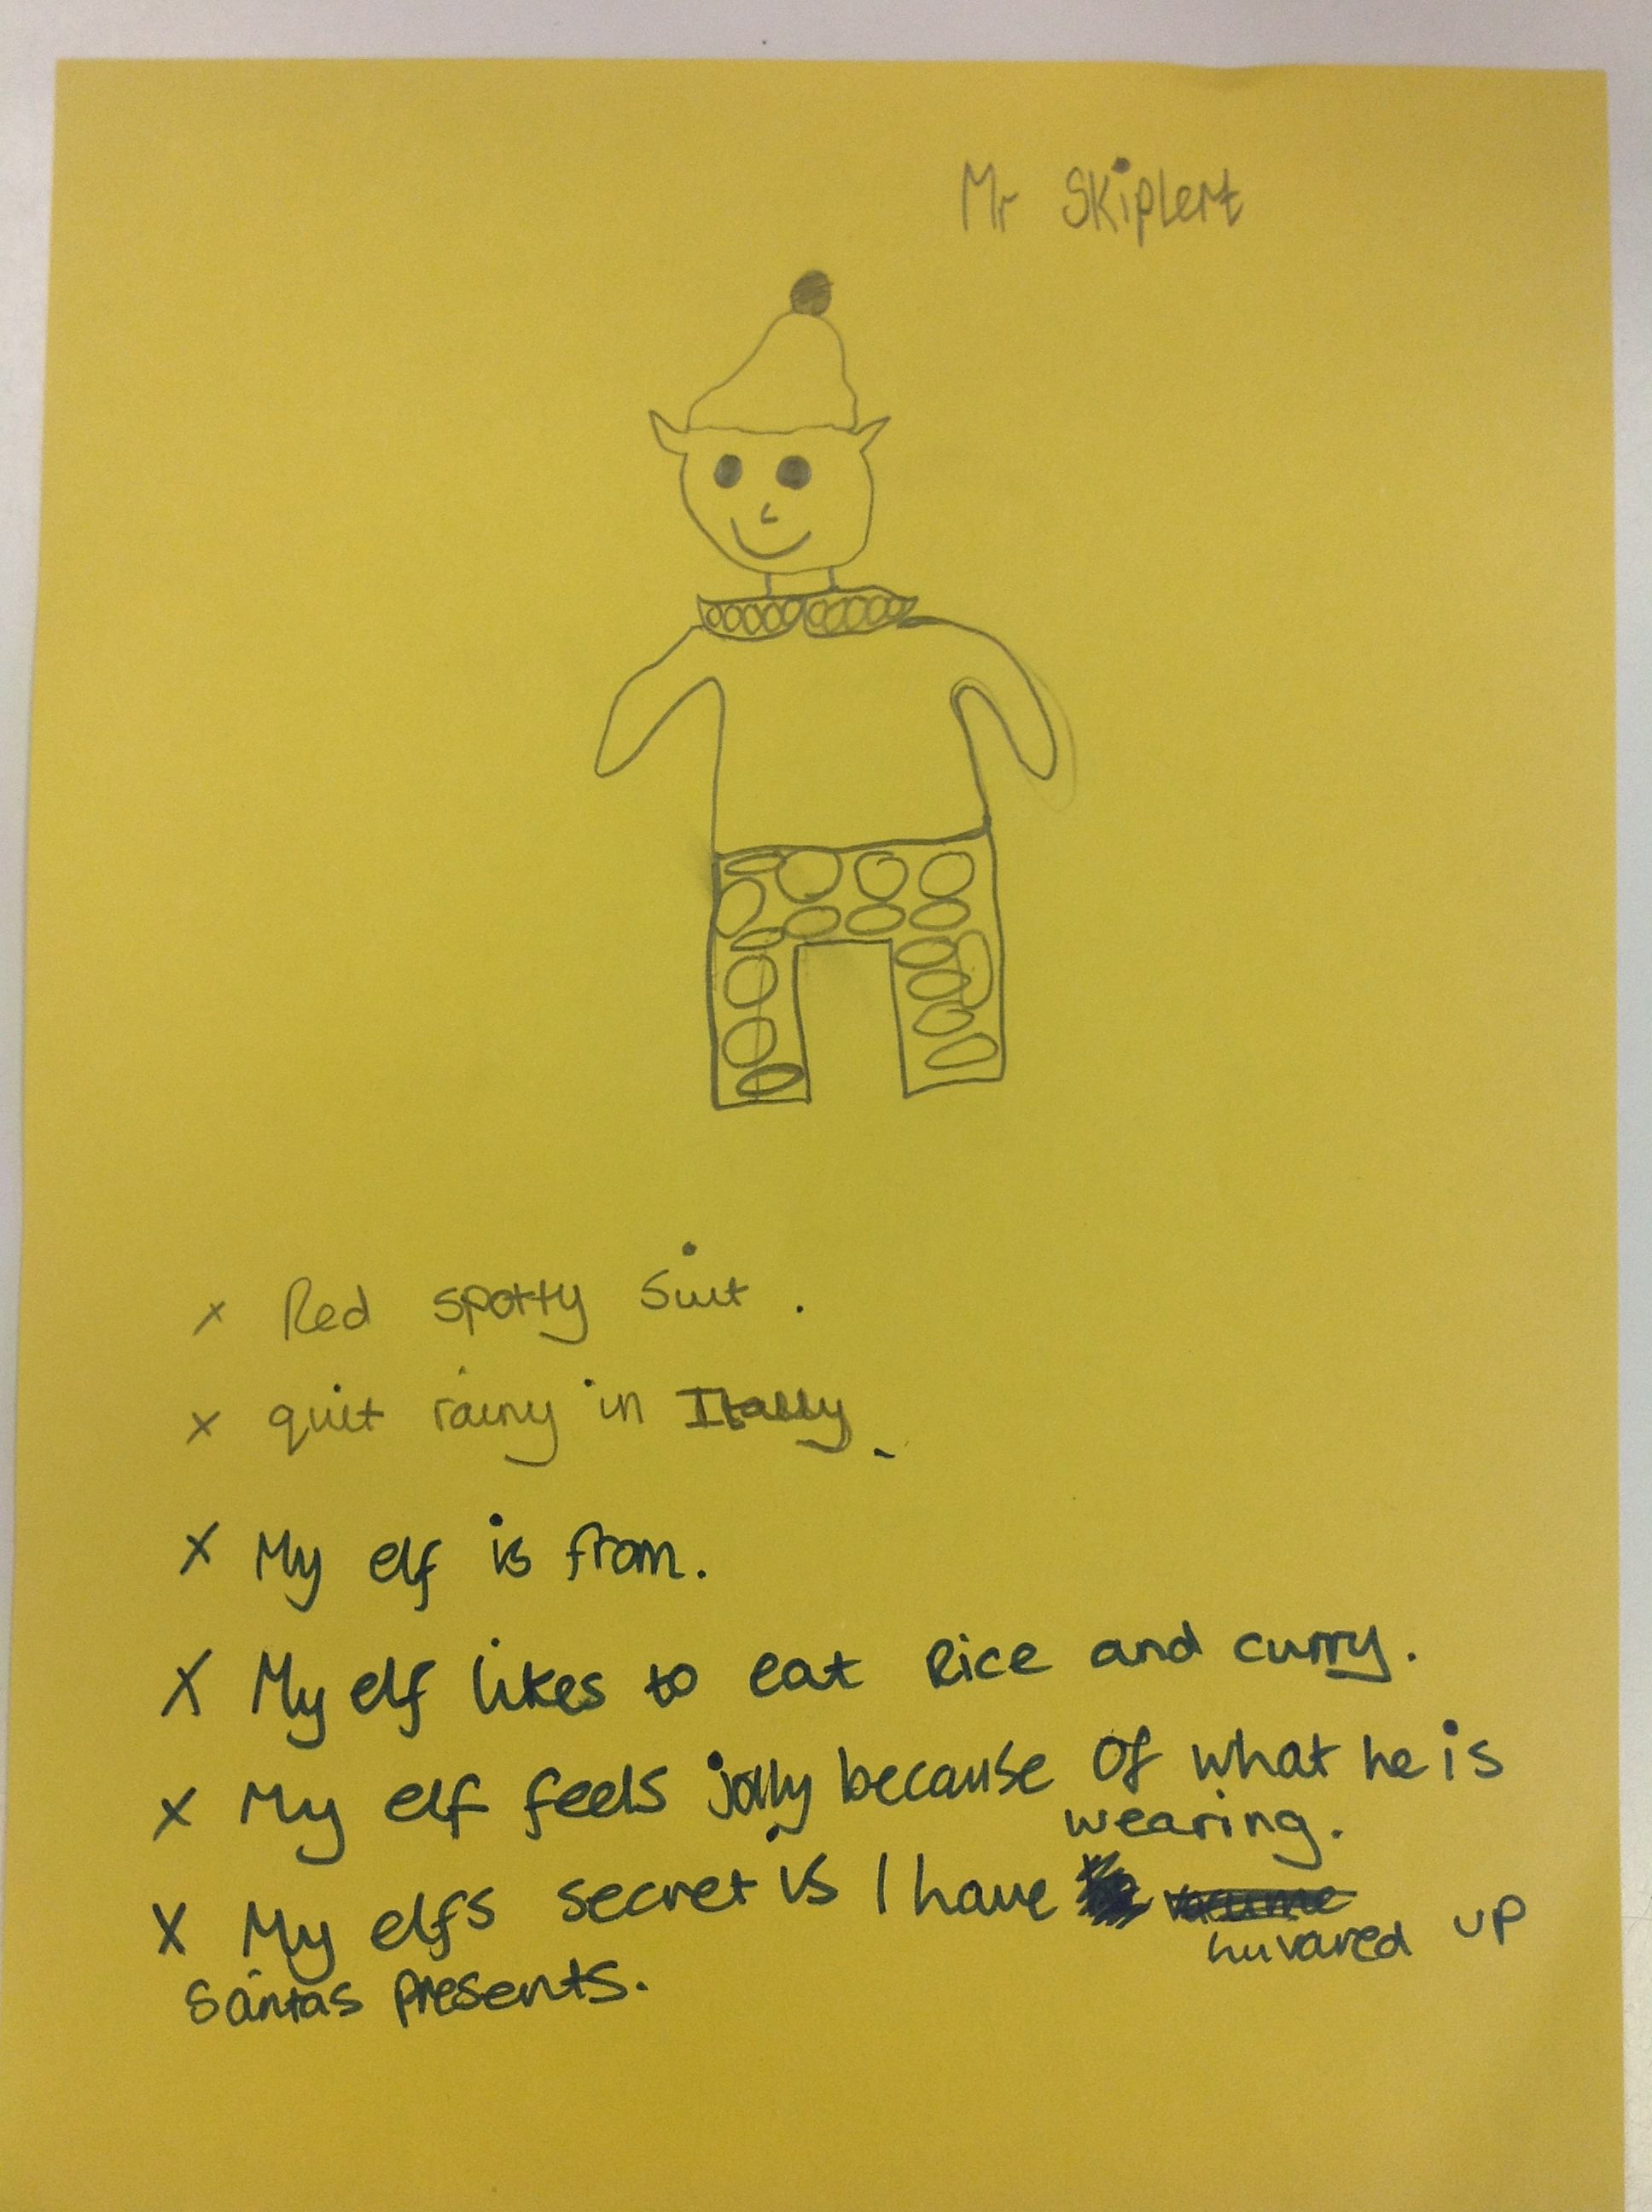 Mr Skiplert
x Red spotty Suit.
x quit rainy in Itally.
x My elf is from.
x My elf likes to eat Rice and curry.
x My elf feels jolly because of what he is
wearing.
x My elfs secret is I have huvared up
Santas presents.